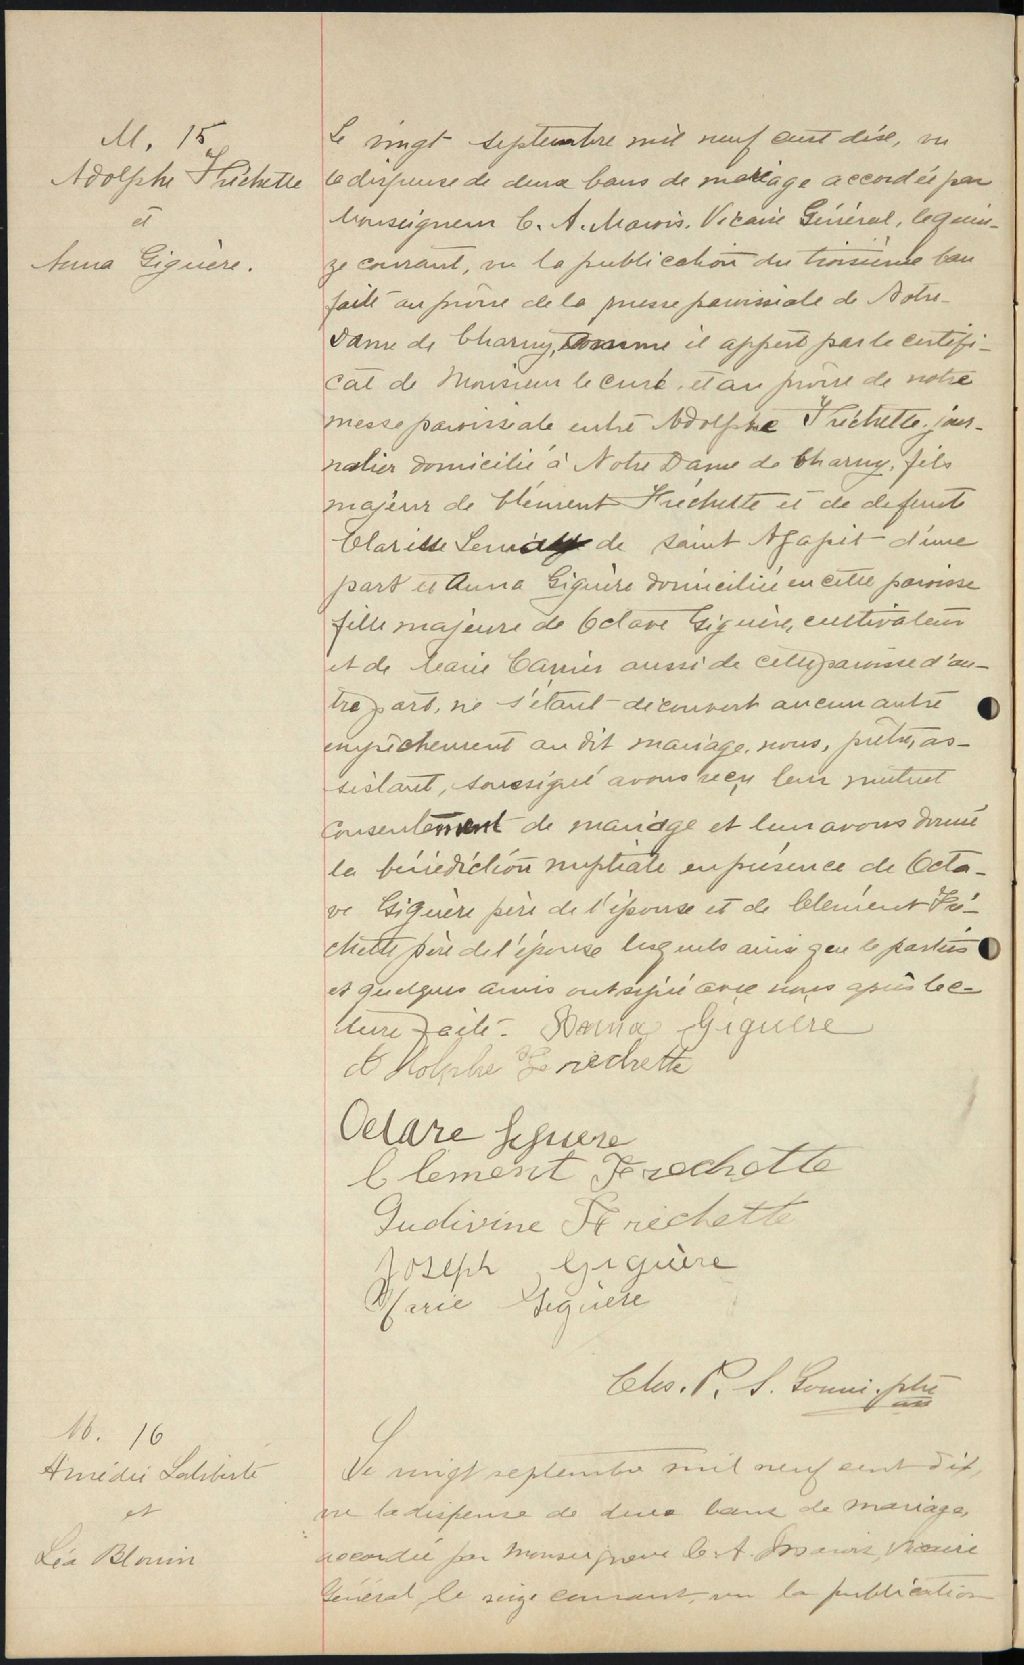 M. 15
Adolphe Fréchette
et
Anna Giguère.
Le vingt septembre mil neuf cent dix, vu
la dispense de deux bans de mariage accordée par
Monseigneur C. A. Marois, Vicaire Général, le quin-
ze courant, vu la publication du troisième ban
faite au prône de la messe paroissiale de Notre-
Dame de Charny, comme il appert par le certifi-
cat de Monsieur le curé, et au prône de notre
messe paroissiale entre Adolphe Fréchette, jour-
nalier domicilié à Notre Dame de Charny, fils
majeur de Clément Fréchette et de defunte
Clarisse Lemay de Saint Agapit d'une
part et Anna Giguère domiciliée en cette paroisse
fille majeure de Octave Giguère, cultivateur
et de Marie Carrier aussi de cette paroisse d'au-
tre part, ne s'étant découvert aucun autre
empêchement au dit mariage, nous, prêtre, as-
sistant, soussigné avons reçu leur mutuel
consentement de mariage et leur avons donné
la bénédiction nuptiale en présence de Octa-
ve Giguère père de l'épouse et de Clément Fré-
chette père de l'épouse lesquels ainsi que le parties
et quelques amis ont signé avec nous après lec-
ture faite. Anna Giguère
Adolphe Frechette
Octave Giguere
Clement Frechette
Ludivine Frechette
Joseph Giguère
Marie Giguère
Chs. P. S. ptre
M. 16
Amédée Laliberté
et
Léa Blouin
Le vingt septembre mil neuf cent dix,
vu la dispense de deux bans de mariage,
accordée par Monseigneur C. A. Marois, Vicaire
Général, le seize courant, vu la publication